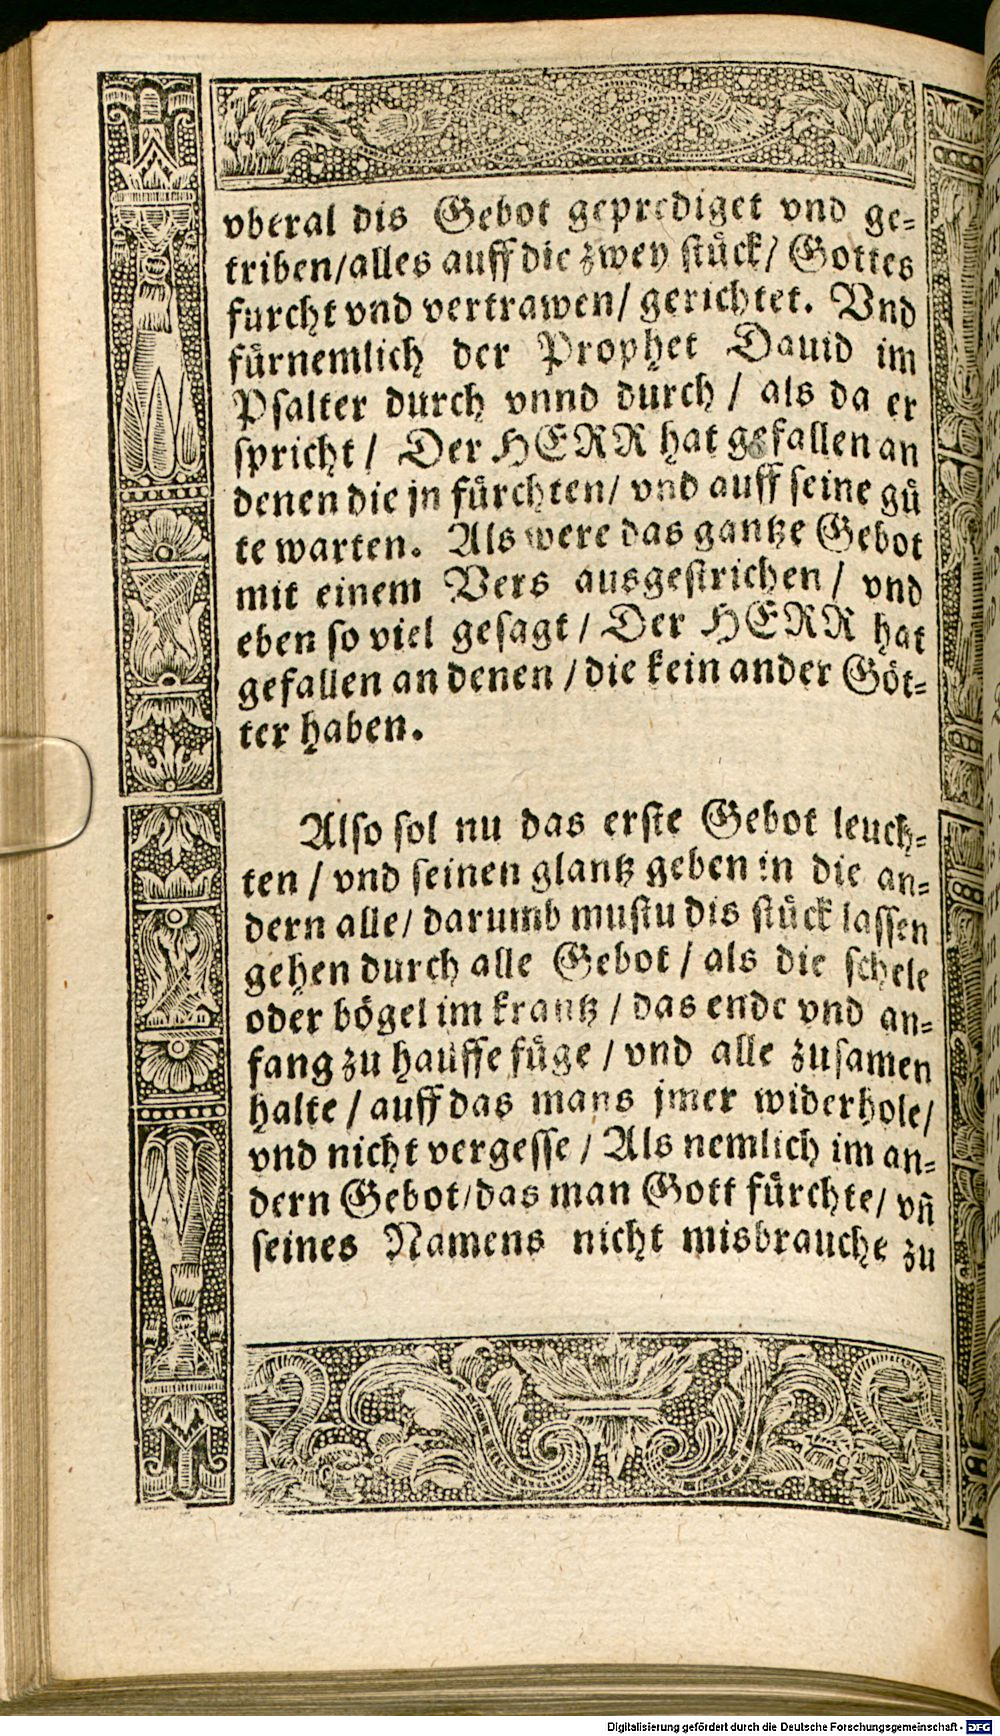 vberal dis Gebot geprediget vnd ge-
triben/alles auff die zwey stück/ Gottes
furcht vnd vertrawen/ gerichtet. Vnd
fürnemlich der Prophet Dauid im
Psalter durch vnnd durch / als da er
spricht / Der HERR hat gefallen an
denen die jn fürchten/ vnd auff seine gü
te warten. Als were das gantze Gebot
mit einem Vers ausgestrichen / vnd
eben so viel gesagt / Der HERR hat
gefallen an denen / die kein ander Göt-
ter haben.
Also sol nu das erste Gebot leuch-
ten / vnd seinen glantz geben in die an-
dern alle/ darumb mustu dis stück lassen
gehen durch alle Gebot / als die schele
oder bögel im krantz / das ende vnd an-
fang zu hauffe füge / vnd alle zusamen
halte / auff das mans jmer widerhole/
vnd nicht vergesse / Als nemlich im an-
dern Gebot/das man Gott fürchte/ vñ
seines Namens nicht misbrauche zu
Digitalisierung gefördert durch die Deutsche Forschungsgemeinschaft - DFG